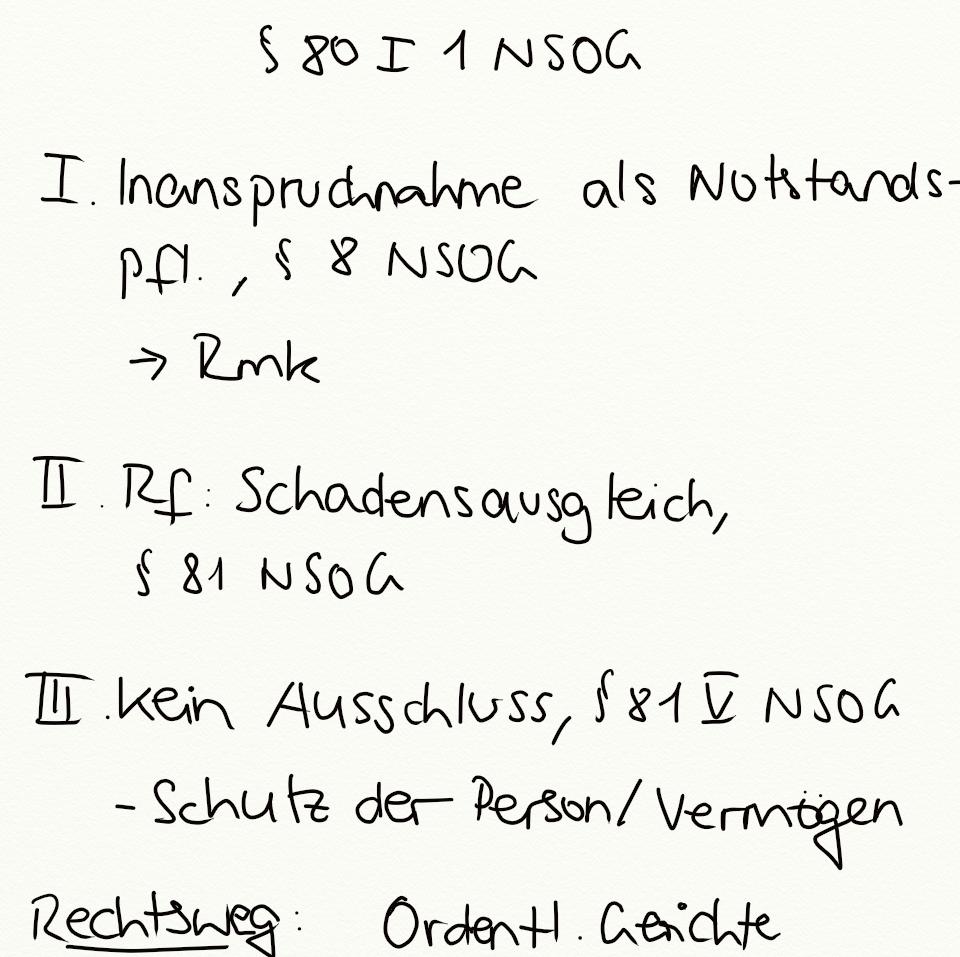 § 80 I 1 NSOG
I. Inanspruchnahme als Notstands-
pfl., § 8 NSOG
→ Rmk
II. Rf: Schadensausgleich,
§ 81 NSOG
III. kein Ausschluss, § 81 V NSOG
- Schutz der Person/Vermögen
Rechtsweg: Ordentl. Gerichte